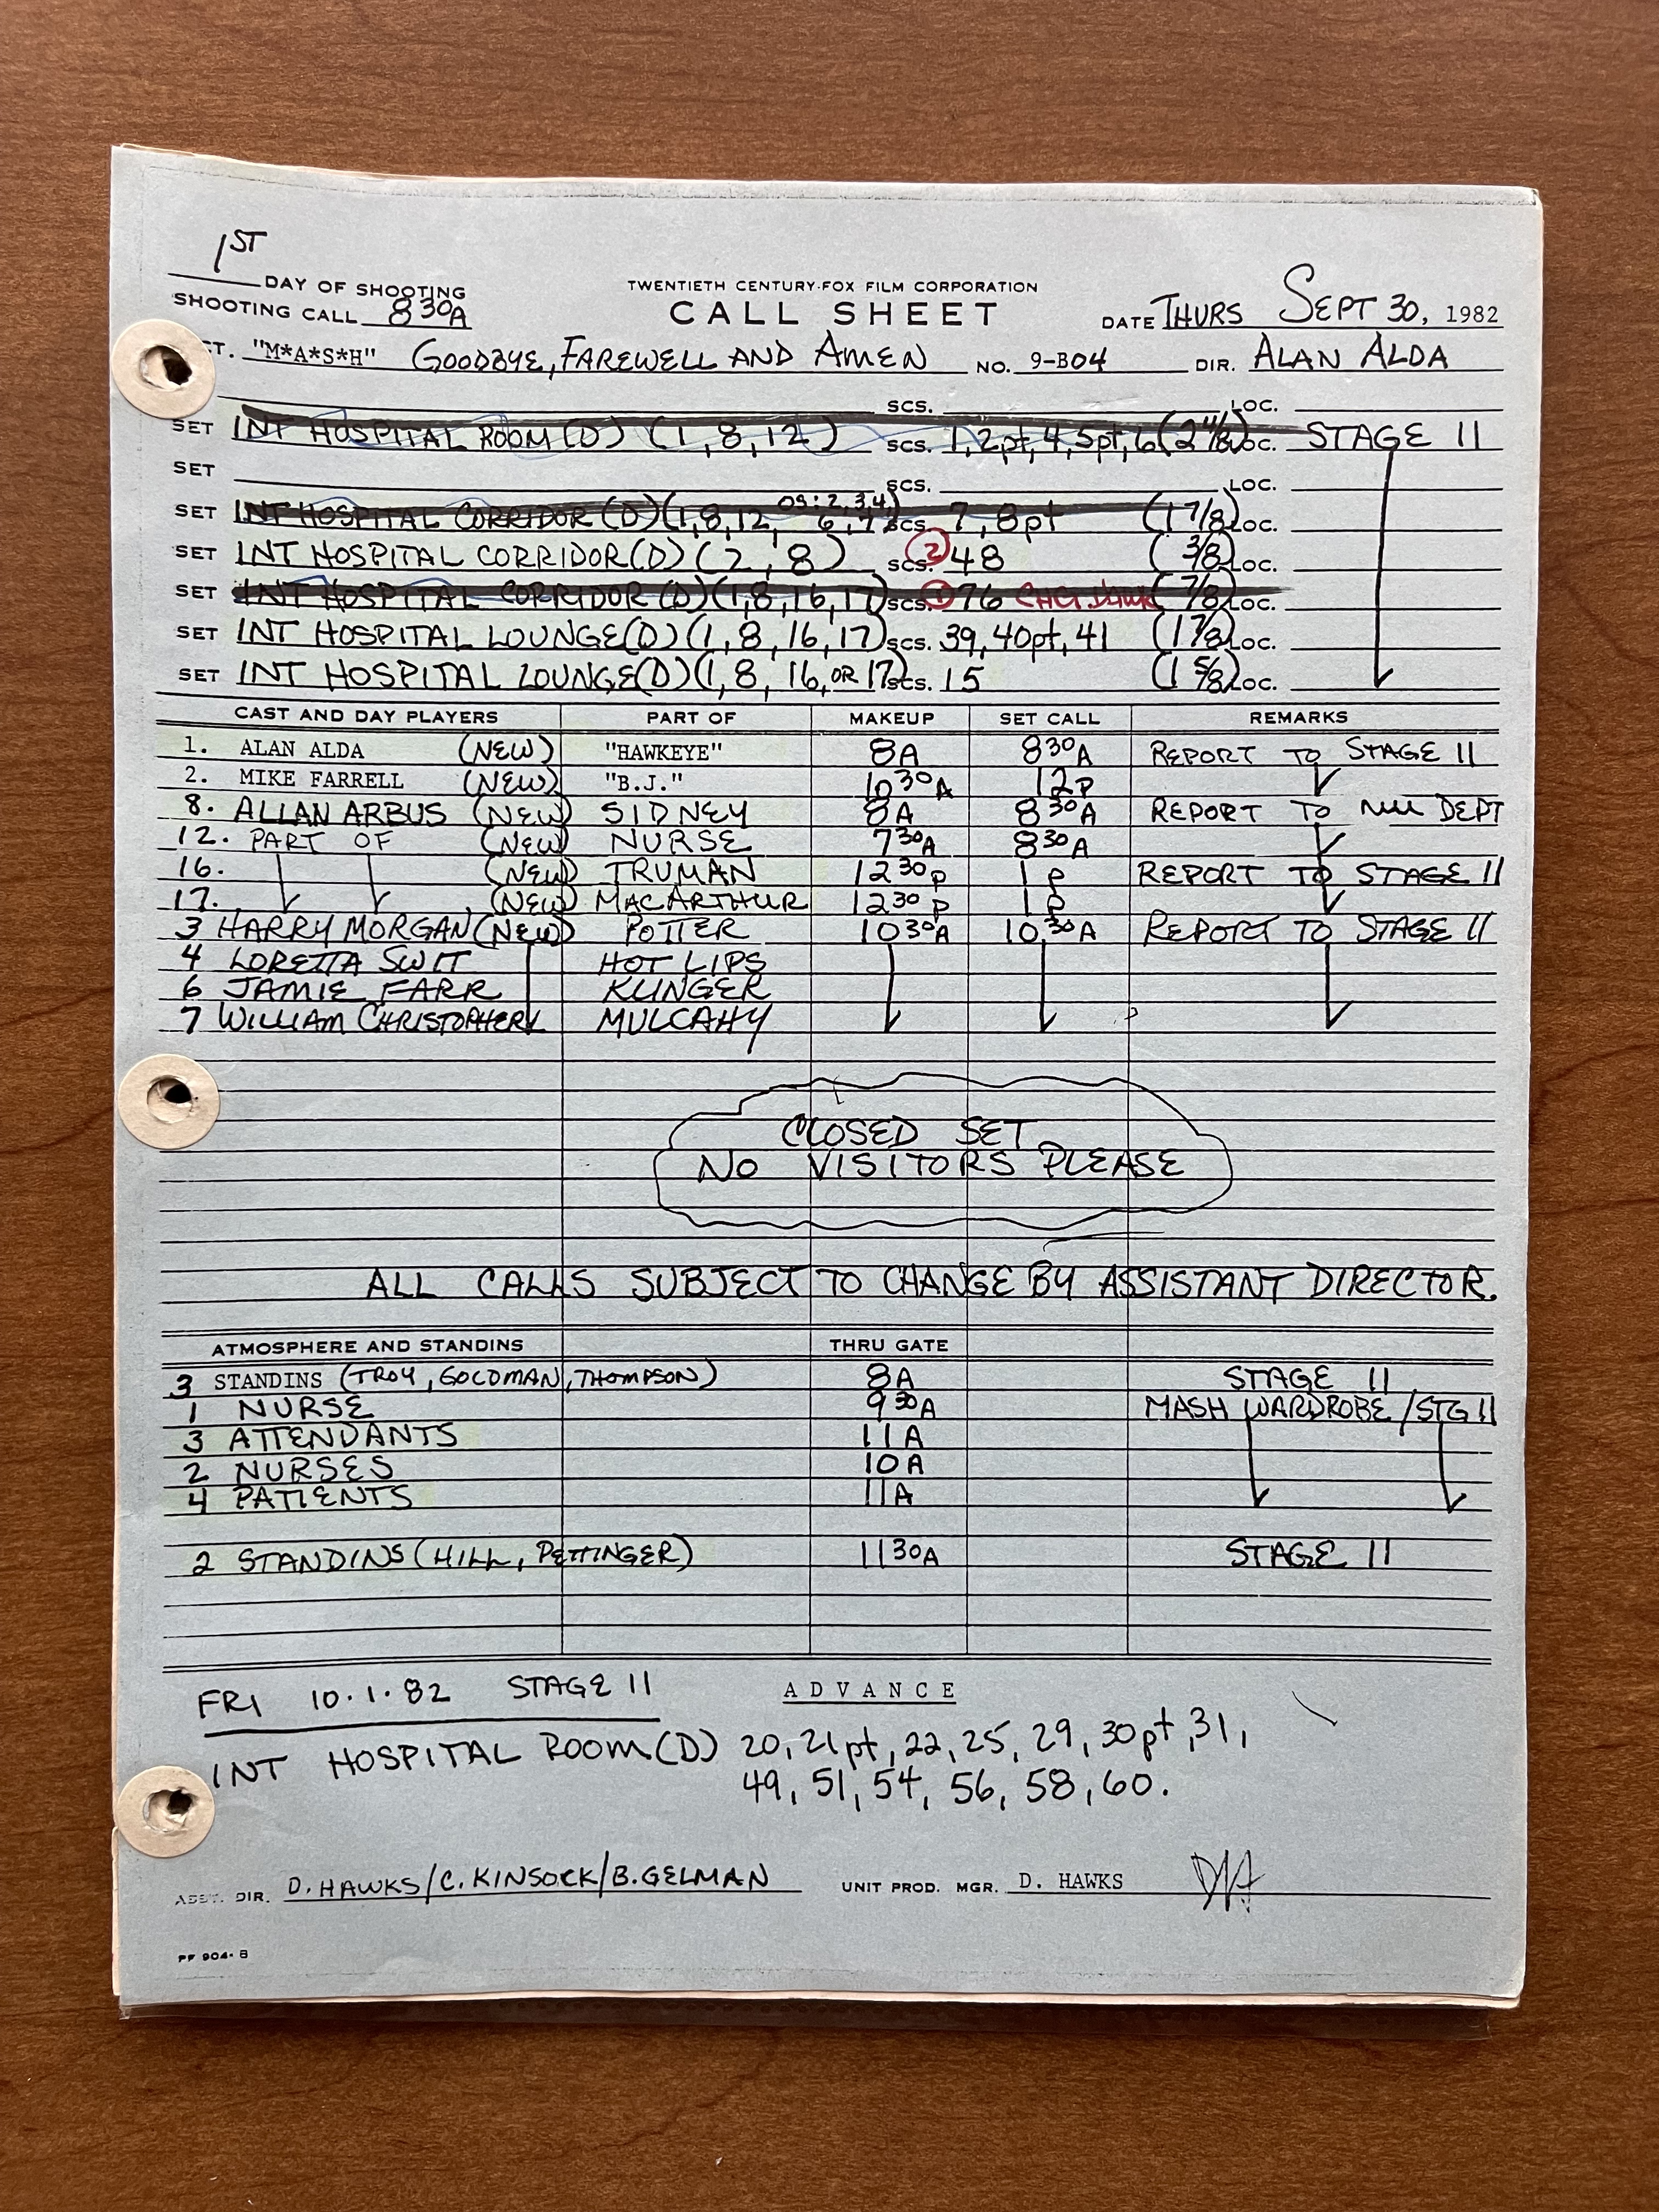 1ST
DAY OF SHOOTING
TWENTIETH CENTURY-FOX FILM CORPORATION
SHOOTING CALL 8 30A CALL SHEET DATE THURS SEPT 30, 1982
T. "M*A*S*H" GOODBYE, FAREWELL AND AMEN NO. 9-B04 DIR. ALAN ALDA
SCS. LOC.
SET INT HOSPITAL ROOM (D) (1, 8, 12) SCS. 1, 2pt, 4, 5pt, 6 (2 4/8) LOC. STAGE 11
SET SCS. LOC.
SET INT HOSPITAL CORRIDOR (D) (1, 8, 12 OS: 2, 3, 4, 6, 7) SCS. 7, 8pt (1 7/8) LOC.
SET INT HOSPITAL CORRIDOR (D) (2, 8) SCS. 2 48 (3/8) LOC.
SET INT HOSPITAL CORRIDOR (D) (1, 8, 16, 17) SCS. 1 76 (7/8) LOC.
SET INT HOSPITAL LOUNGE (D) (1, 8, 16, 17) SCS. 39, 40pt, 41 (1 7/8) LOC.
SET INT HOSPITAL LOUNGE (D) (1, 8, 16, OR 17) SCS. 15 (1 5/8) LOC.
CAST AND DAY PLAYERS PART OF MAKEUP SET CALL REMARKS
1. ALAN ALDA (NEW) "HAWKEYE" 8A 8 30A REPORT TO STAGE 11
2. MIKE FARRELL (NEW) "B.J." 10 30A 12P
8. ALLAN ARBUS (NEW) SIDNEY 8A 8 30A REPORT TO MU DEPT
12. PART OF (NEW) NURSE 7 30A 8 30A
16. (NEW) TRUMAN 12 30P 1P REPORT TO STAGE 11
17. (NEW) MACARTHUR 12 30P 1P
3 HARRY MORGAN (NEW) POTTER 10 30A 10 30A REPORT TO STAGE 11
4 LORETTA SWIT HOT LIPS
6 JAMIE FARR KLINGER
7 WILLIAM CHRISTOPHER MULCAHY
CLOSED SET
NO VISITORS PLEASE
ALL CALLS SUBJECT TO CHANGE BY ASSISTANT DIRECTOR.
ATMOSPHERE AND STANDINS THRU GATE
3 STANDINS (TROY, GOLDMAN, THOMPSON) 8A STAGE 11
1 NURSE 9 30A MASH WARDROBE / STG 11
3 ATTENDANTS 11A
2 NURSES 10A
4 PATIENTS 11A
2 STANDINS (HILL, PETTINGER) 11 30A STAGE 11
FRI 10.1.82 STAGE 11 ADVANCE
INT HOSPITAL ROOM (D) 20, 21pt, 22, 25, 29, 30pt, 31,
49, 51, 54, 56, 58, 60.
ASST. DIR. D. HAWKS/C. KINSOCK/B. GELMAN UNIT PROD. MGR. D. HAWKS
PF 904-B